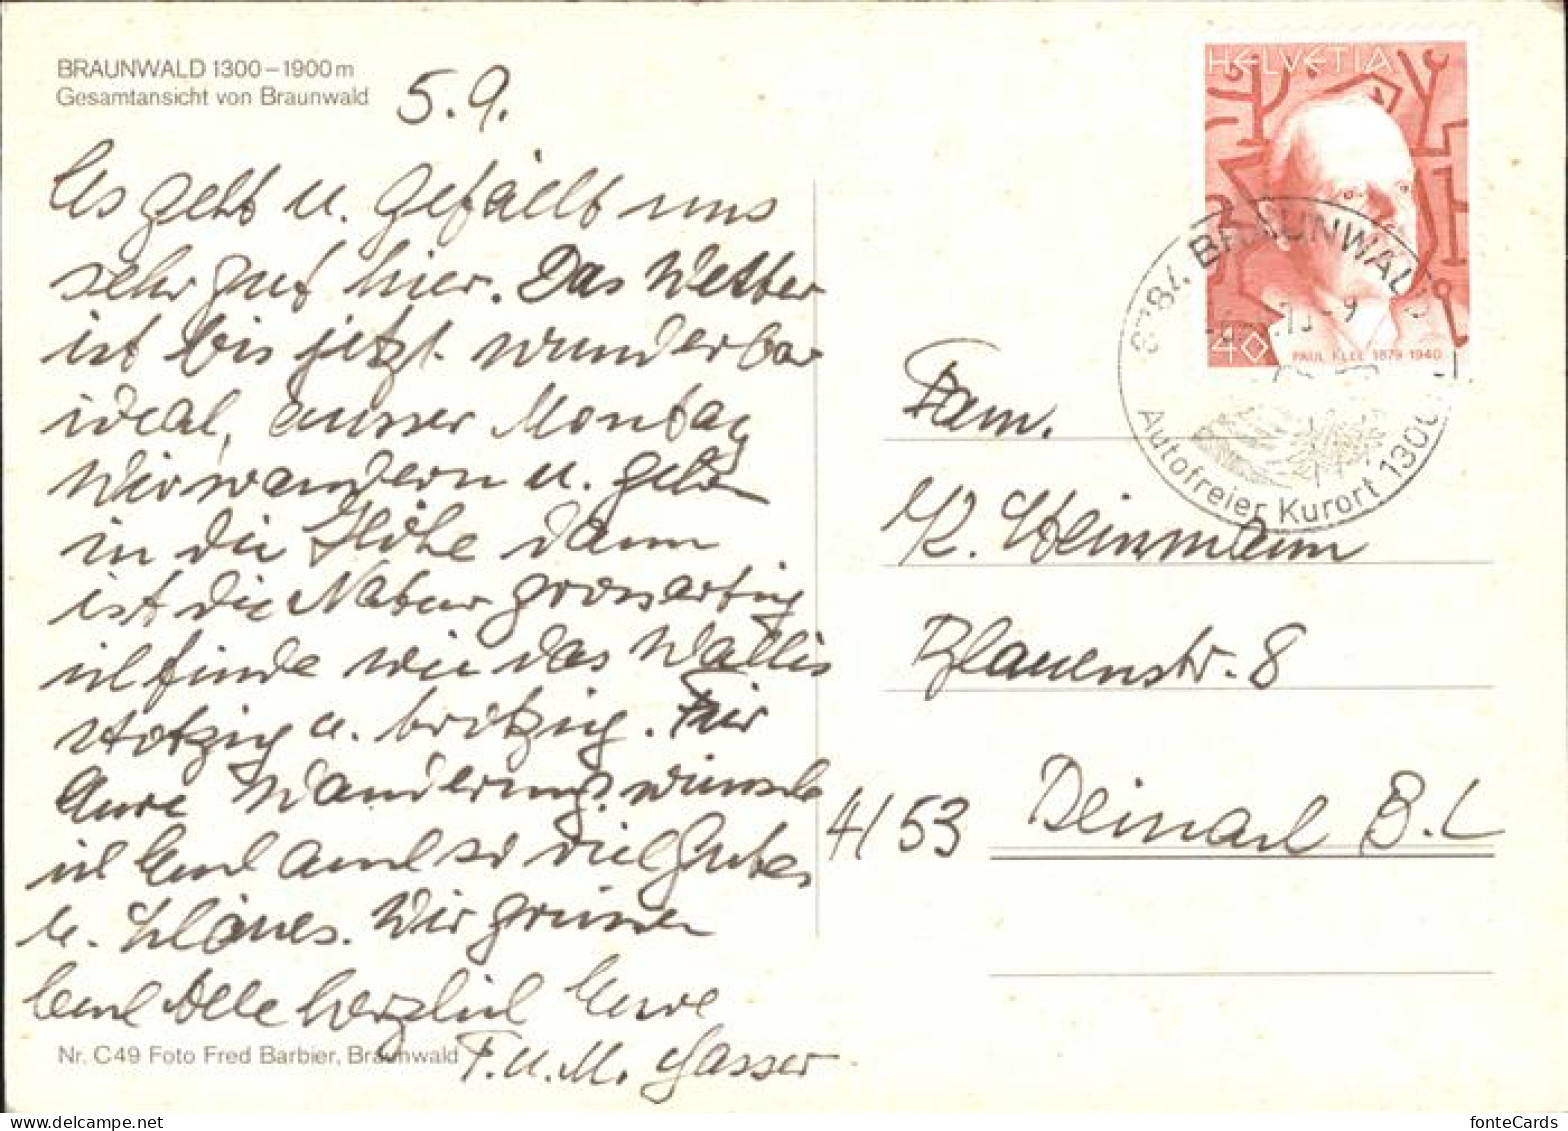 BRAUNWALD 1300–1900 m
Gesamtansicht von Braunwald
5.9.
Es geht u. gefällt uns
sehr gut hier. Das Wetter
ist bis jetzt wunderbar
ideal, ausser Montag
Wir wandern u. gehn
in die Höhe dann
ist die Natur grossartig
ich finde wie das Wallis
stotzig u. brötzig. Für
Eure Wanderung. wünsche
ich Euch auch so viel Gutes
u. Schönes. Wir grüssen
Euch Alle herzlich Eure
F. u. M. Gasser
Nr. C49 Foto Fred Barbier, Braunwald
HELVETIA
40
PAUL KLEE 1879 1940
8784 BRAUNWALD
Autofreier Kurort 1300
Fam.
K. Steinmann
Blauenstr. 8
4153 Reinach B.L
fonteCards